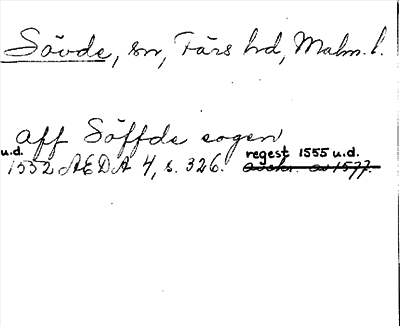 Sövde, sn, Färs hd, Malm. l.
aff Söffde sogen
u.d. regest 1555 u.d.
1552 AEDA 4, s. 326. avskr. av 1577.